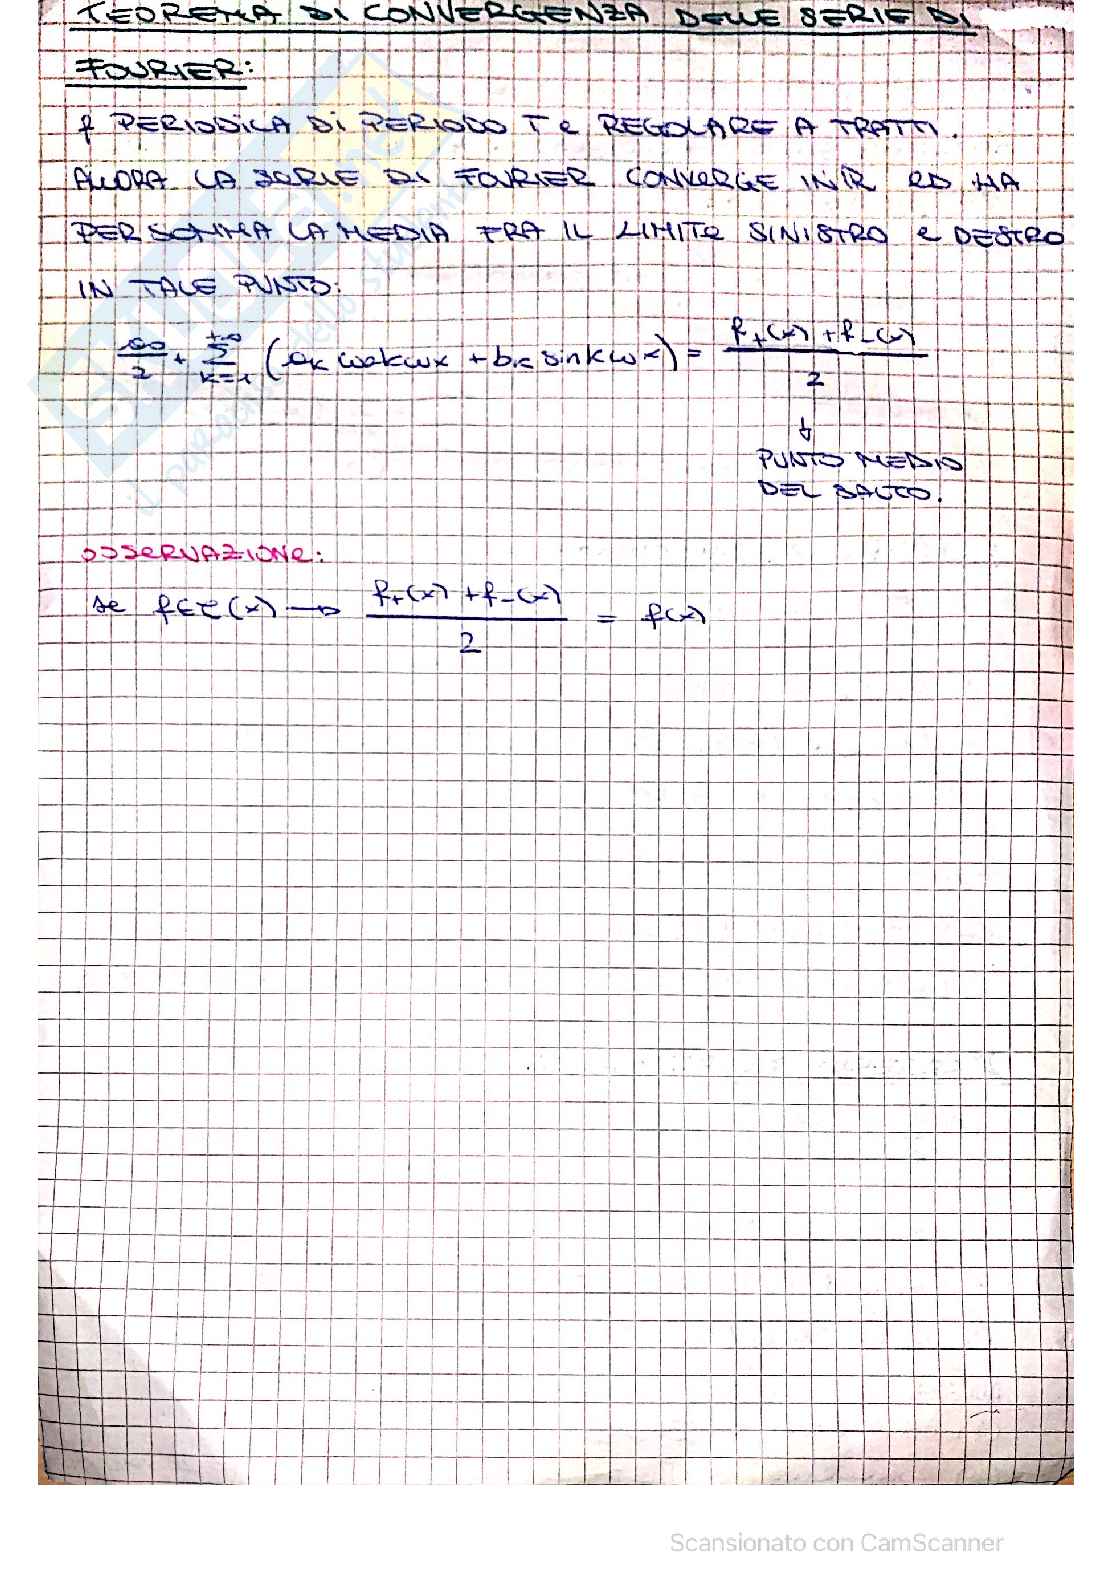 TEOREMA DI CONVERGENZA DELLE SERIE DI
FOURIER:
f PERIODICA DI PERIODO T e REGOLARE A TRATTI.
ALLORA LA SERIE DI FOURIER CONVERGE IN ℝ ED HA
PER SOMMA LA MEDIA FRA IL LIMITE SINISTRO e DESTRO
IN TALE PUNTO:
a₀/2 + Σ_{k=1}^{+∞} (aₖ cos kωx + bₖ sin kωx) = (f₊(x) + f₋(x))/2
↓
PUNTO MEDIO
DEL SALTO.
OSSERVAZIONE:
se f∈C(x) → (f₊(x) + f₋(x))/2 = f(x)
Scansionato con CamScanner